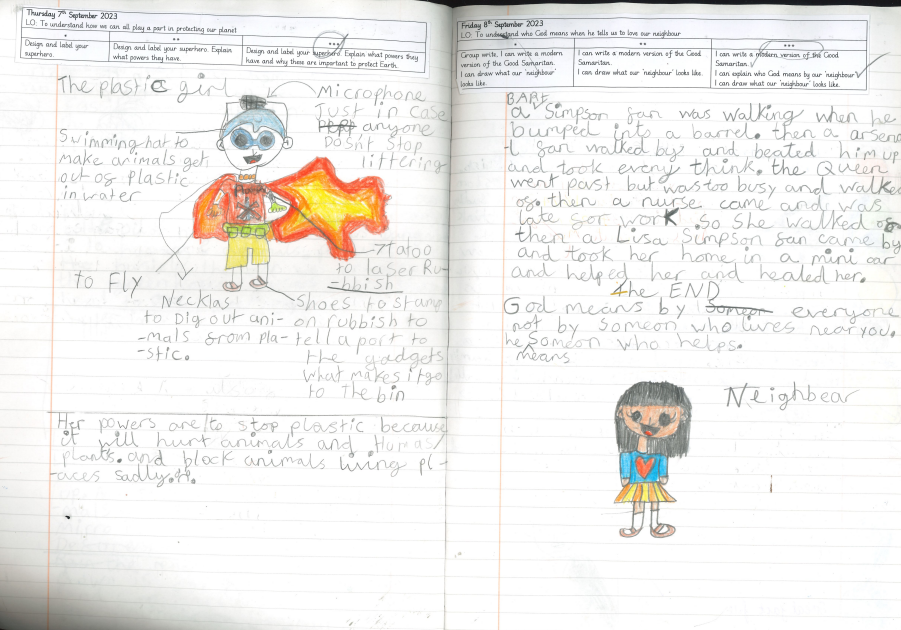 Thursday 7th September 2023
LO: To understand how we can all play a part in protecting our planet
*
**
***
Design and label your
superhero.
Design and label your superhero. Explain
what powers they have.
Design and label your superhero. Explain what powers they
have and why these are important to protect Earth.
The plastic girl
Microphone
Just in case
anyone
Dosn't stop
littering
Swimming hat to
make animals get
out of plastic
in water
to Fly
Necklas
to Dig out ani-
-mals from pla-
-stic.
Tatoo
to laser Ru-
-bbish
Shoes to stand
on rubbish to
tellaport to
the gadgets
what makes it go
to the bin
Her powers are/to stop plastic because
it will hurt animals and Humas/
plants. and block animals living pl-
-aces sadly.
Friday 8th September 2023
LO: To understand who God means when he tells us to love our neighbour
*
**
***
Group write, I can write a modern
version of the Good Samaritan.
I can draw what our 'neighbour'
looks like.
I can write a modern version of the Good
Samaritan.
I can draw what our 'neighbour' looks like.
I can write a modern version of the Good
Samaritan.
I can explain who God means by our 'neighbour'
I can draw what our 'neighbour' looks like.
BART
a Simpson fan was walking when he
bumped into a barrel. then a arsena
-l fan walked by and beated him up
and took every think. the Queen
went past but was too busy and walked
of. then a nurse came and was
late for work so she walked of
then a Lisa Simpson fan came by
and took her home in a mini car
and helped her and healed her.
the END
God means by someon everyone
not by someon who lives near you.
he means someon who helps.
Neighbear